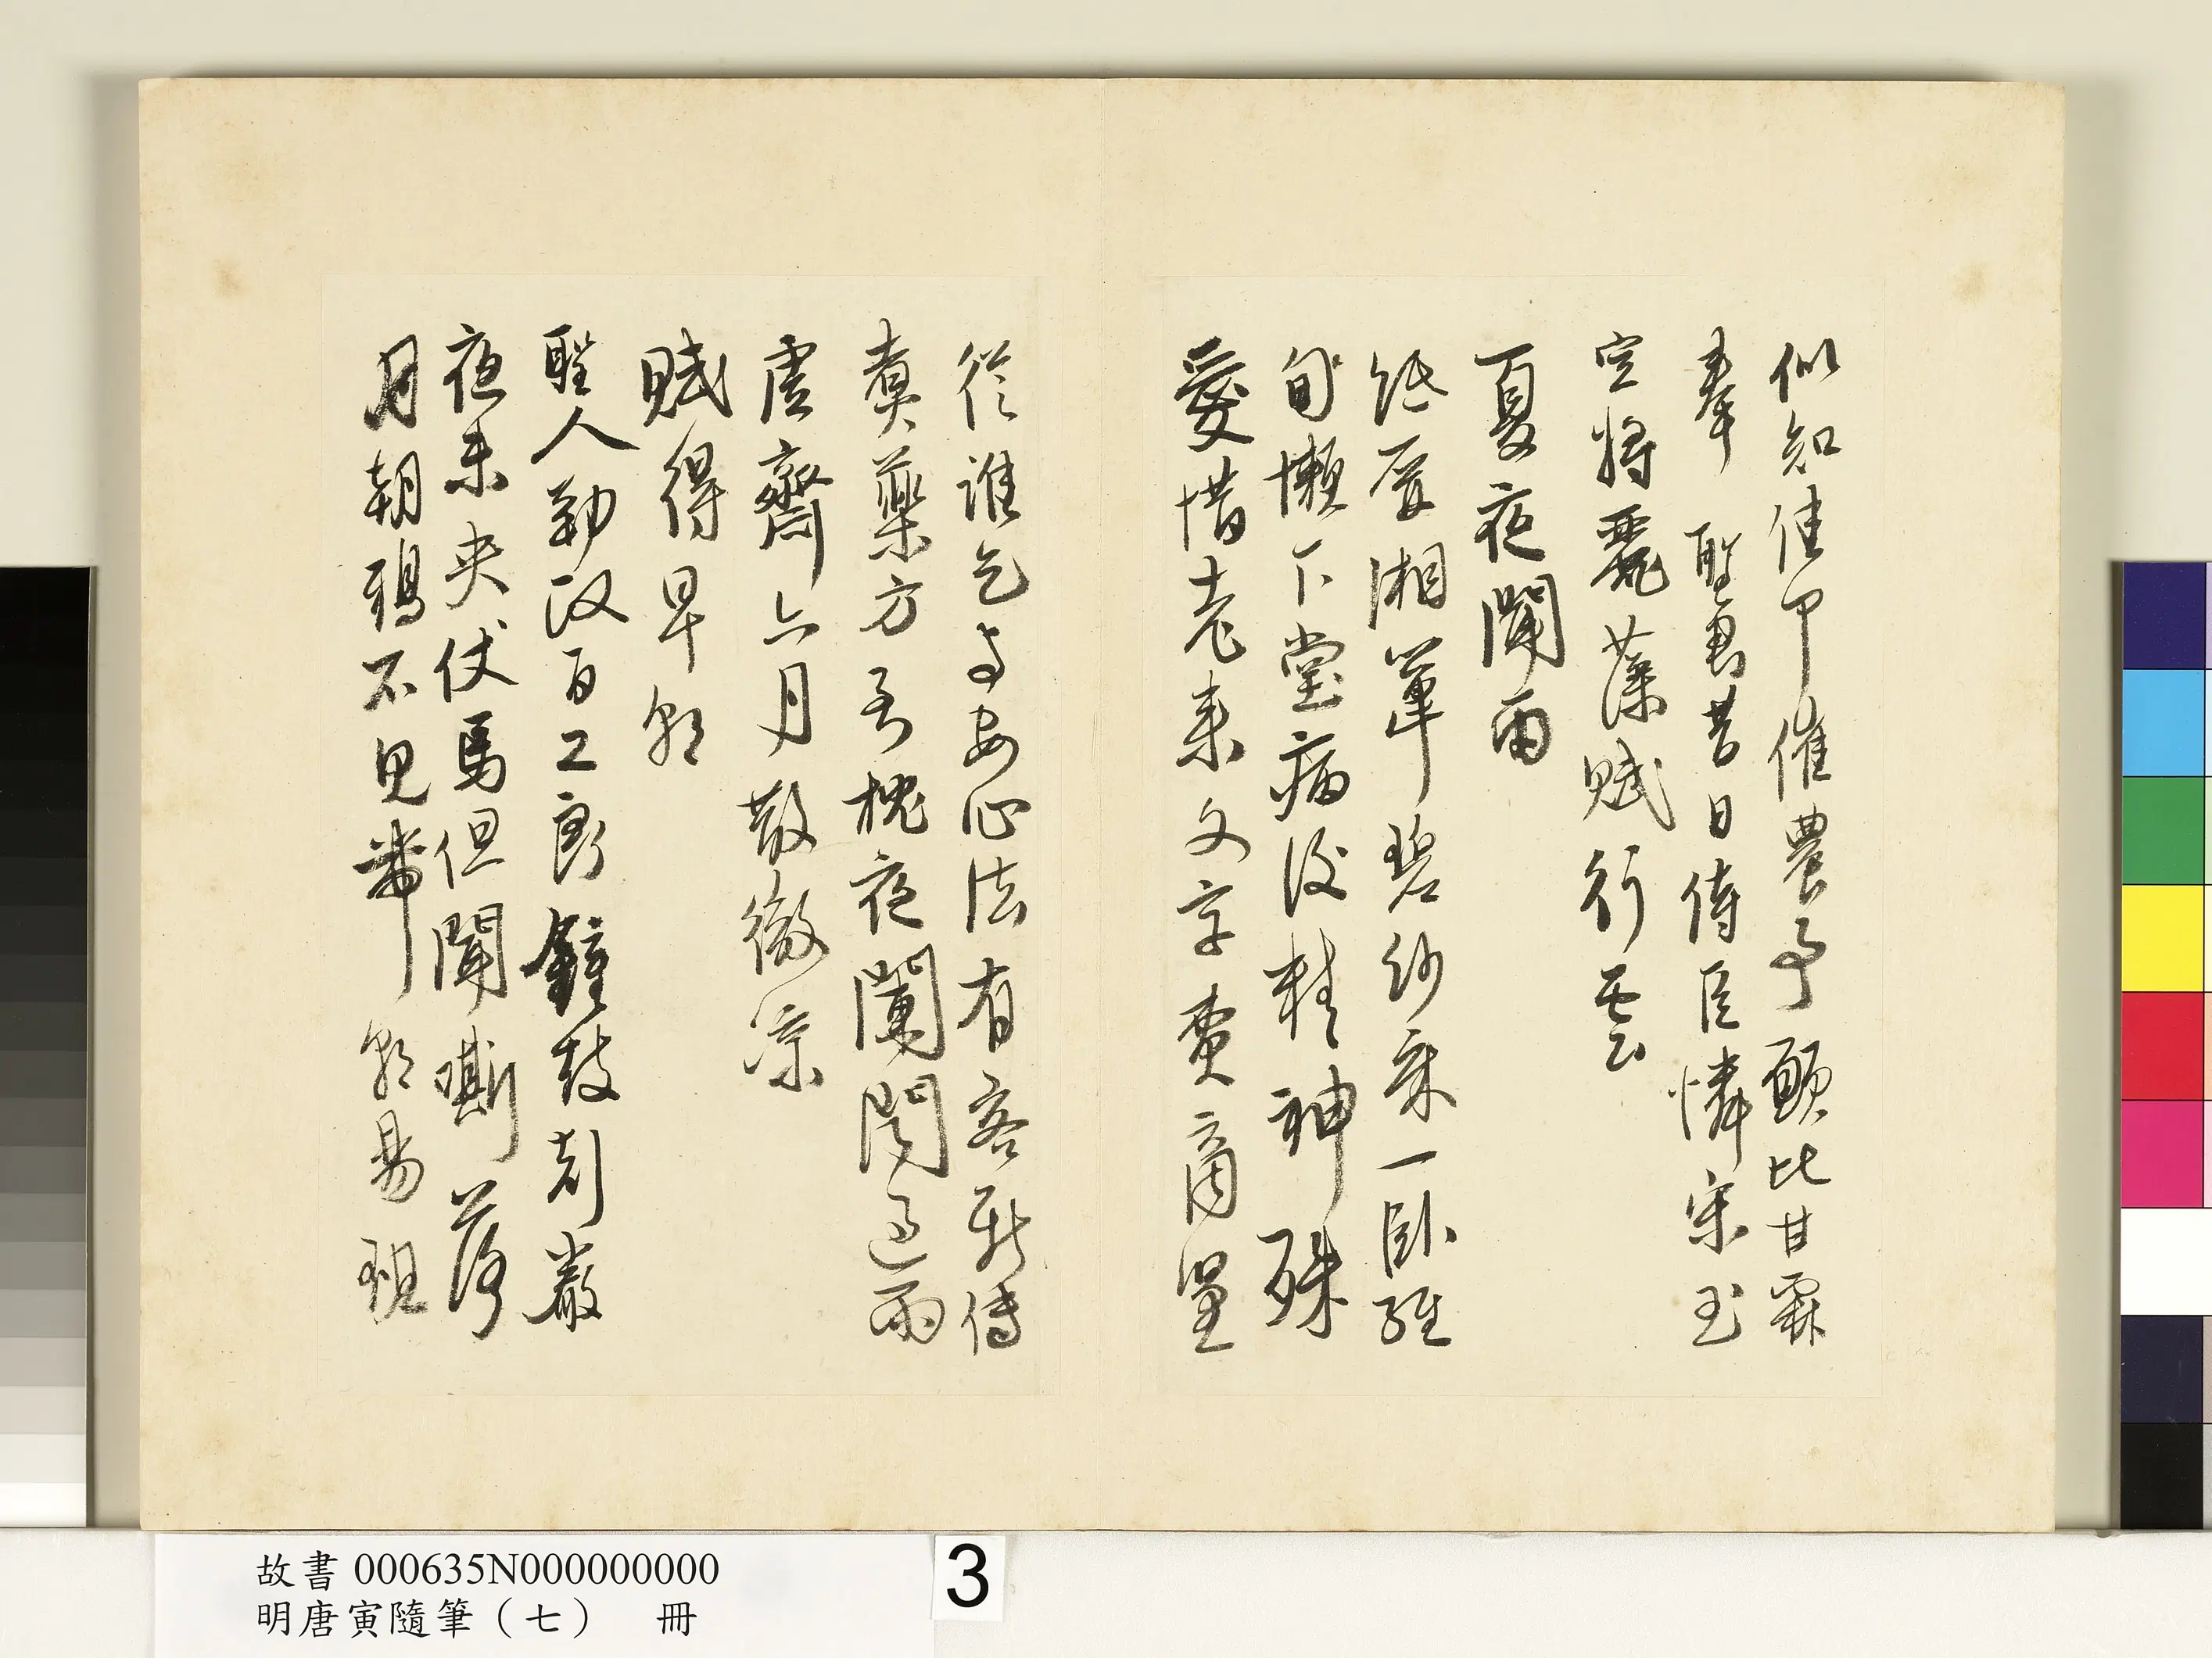 似知佳甲催農事願比甘霖
奉 聖君昔日侍臣憐宋玉
空將麗藻賦行雲
夏夜聞雨
紙屏湘簟碧紗床一臥經
旬懶下堂病後精神殊
愛惜老來文字費商量
從誰乞與安心法有客新傳
煮藥方高槐夜闌聞過雨
虛齋六月散微涼
賦得早朝
聖人勤政百工良鐘鼓刻嚴
夜未央仗馬但聞嘶落
月朝鴉不見帶朝昜
故書000635N000000000
明唐寅隨筆（七） 冊
3